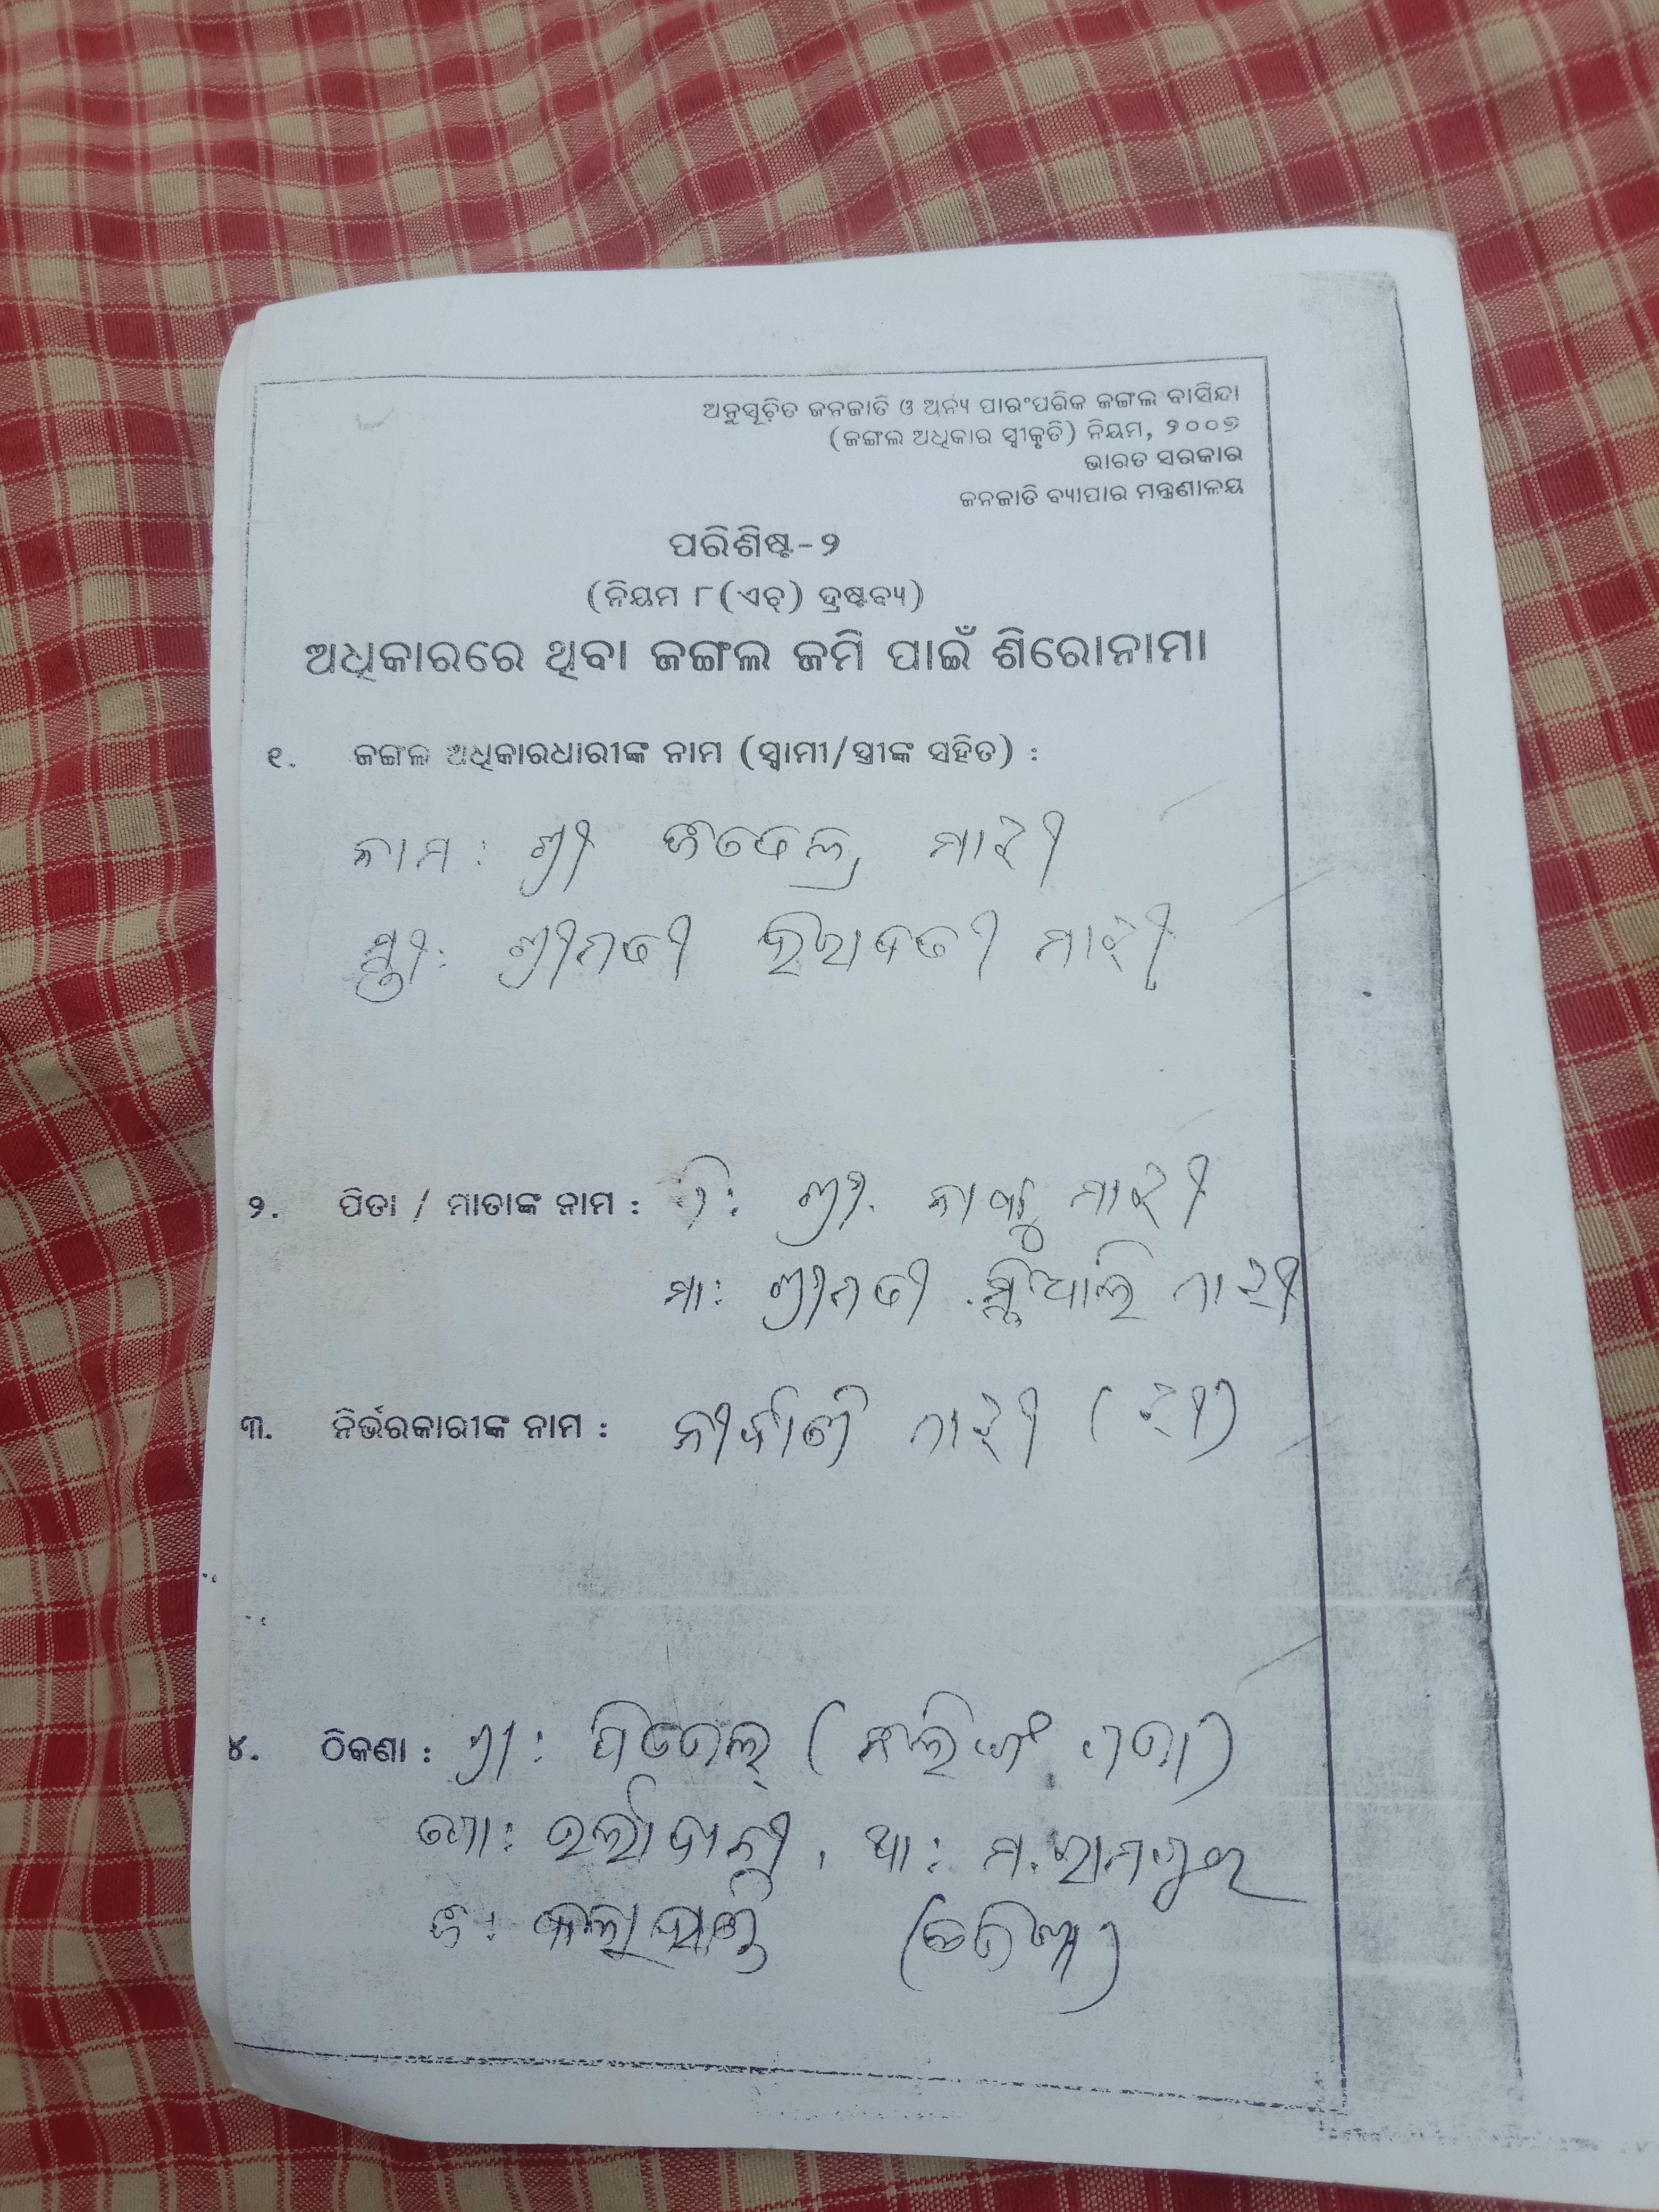 ଅନୁସୂଚିତ ଜନଜାତି ଓ ଅନ୍ୟ ପାରଂପରିକ ଜଙ୍ଗଲ ବାସିନ୍ଦା
(ଜଙ୍ଗଲ ଅଧିକାର ସ୍ୱୀକୃତି) ନିୟମ, ୨୦୦୭
ଭାରତ ସରକାର
ଜନଜାତି ବ୍ୟାପାର ମନ୍ତ୍ରଣାଳୟ
ପରିଶିଷ୍ଟ-୨
(ନିୟମ ୮(ଏଚ୍) ଦ୍ରଷ୍ଟବ୍ୟ)
ଅଧିକାରରେ ଥିବା ଜଙ୍ଗଲ ଜମି ପାଇଁ ଶିରୋନାମା
୧. ଜଙ୍ଗଲ ଅଧିକାରଧାରୀଙ୍କ ନାମ (ସ୍ୱାମୀ/ସ୍ତ୍ରୀଙ୍କ ସହିତ) :
ନାମ : ଶ୍ରୀ ମାଝୀ
ସ୍ତ୍ରୀ : ଶ୍ରୀମତୀ ମାଝୀ
୨. ପିତା / ମାତାଙ୍କ ନାମ : ପି : ଶ୍ରୀ. ମାଝୀ
ମା : ଶ୍ରୀମତୀ ମାଝୀ
୩. ନିର୍ଭରକାରୀଙ୍କ ନାମ : ମାଝୀ (ଝୀ)
୪. ଠିକଣା : ଗ୍ରା :
ପୋ : , ଥା : ମ. ରାମପୁର
ଜି : କଳାହାଣ୍ଡି (ଓଡିଶା)